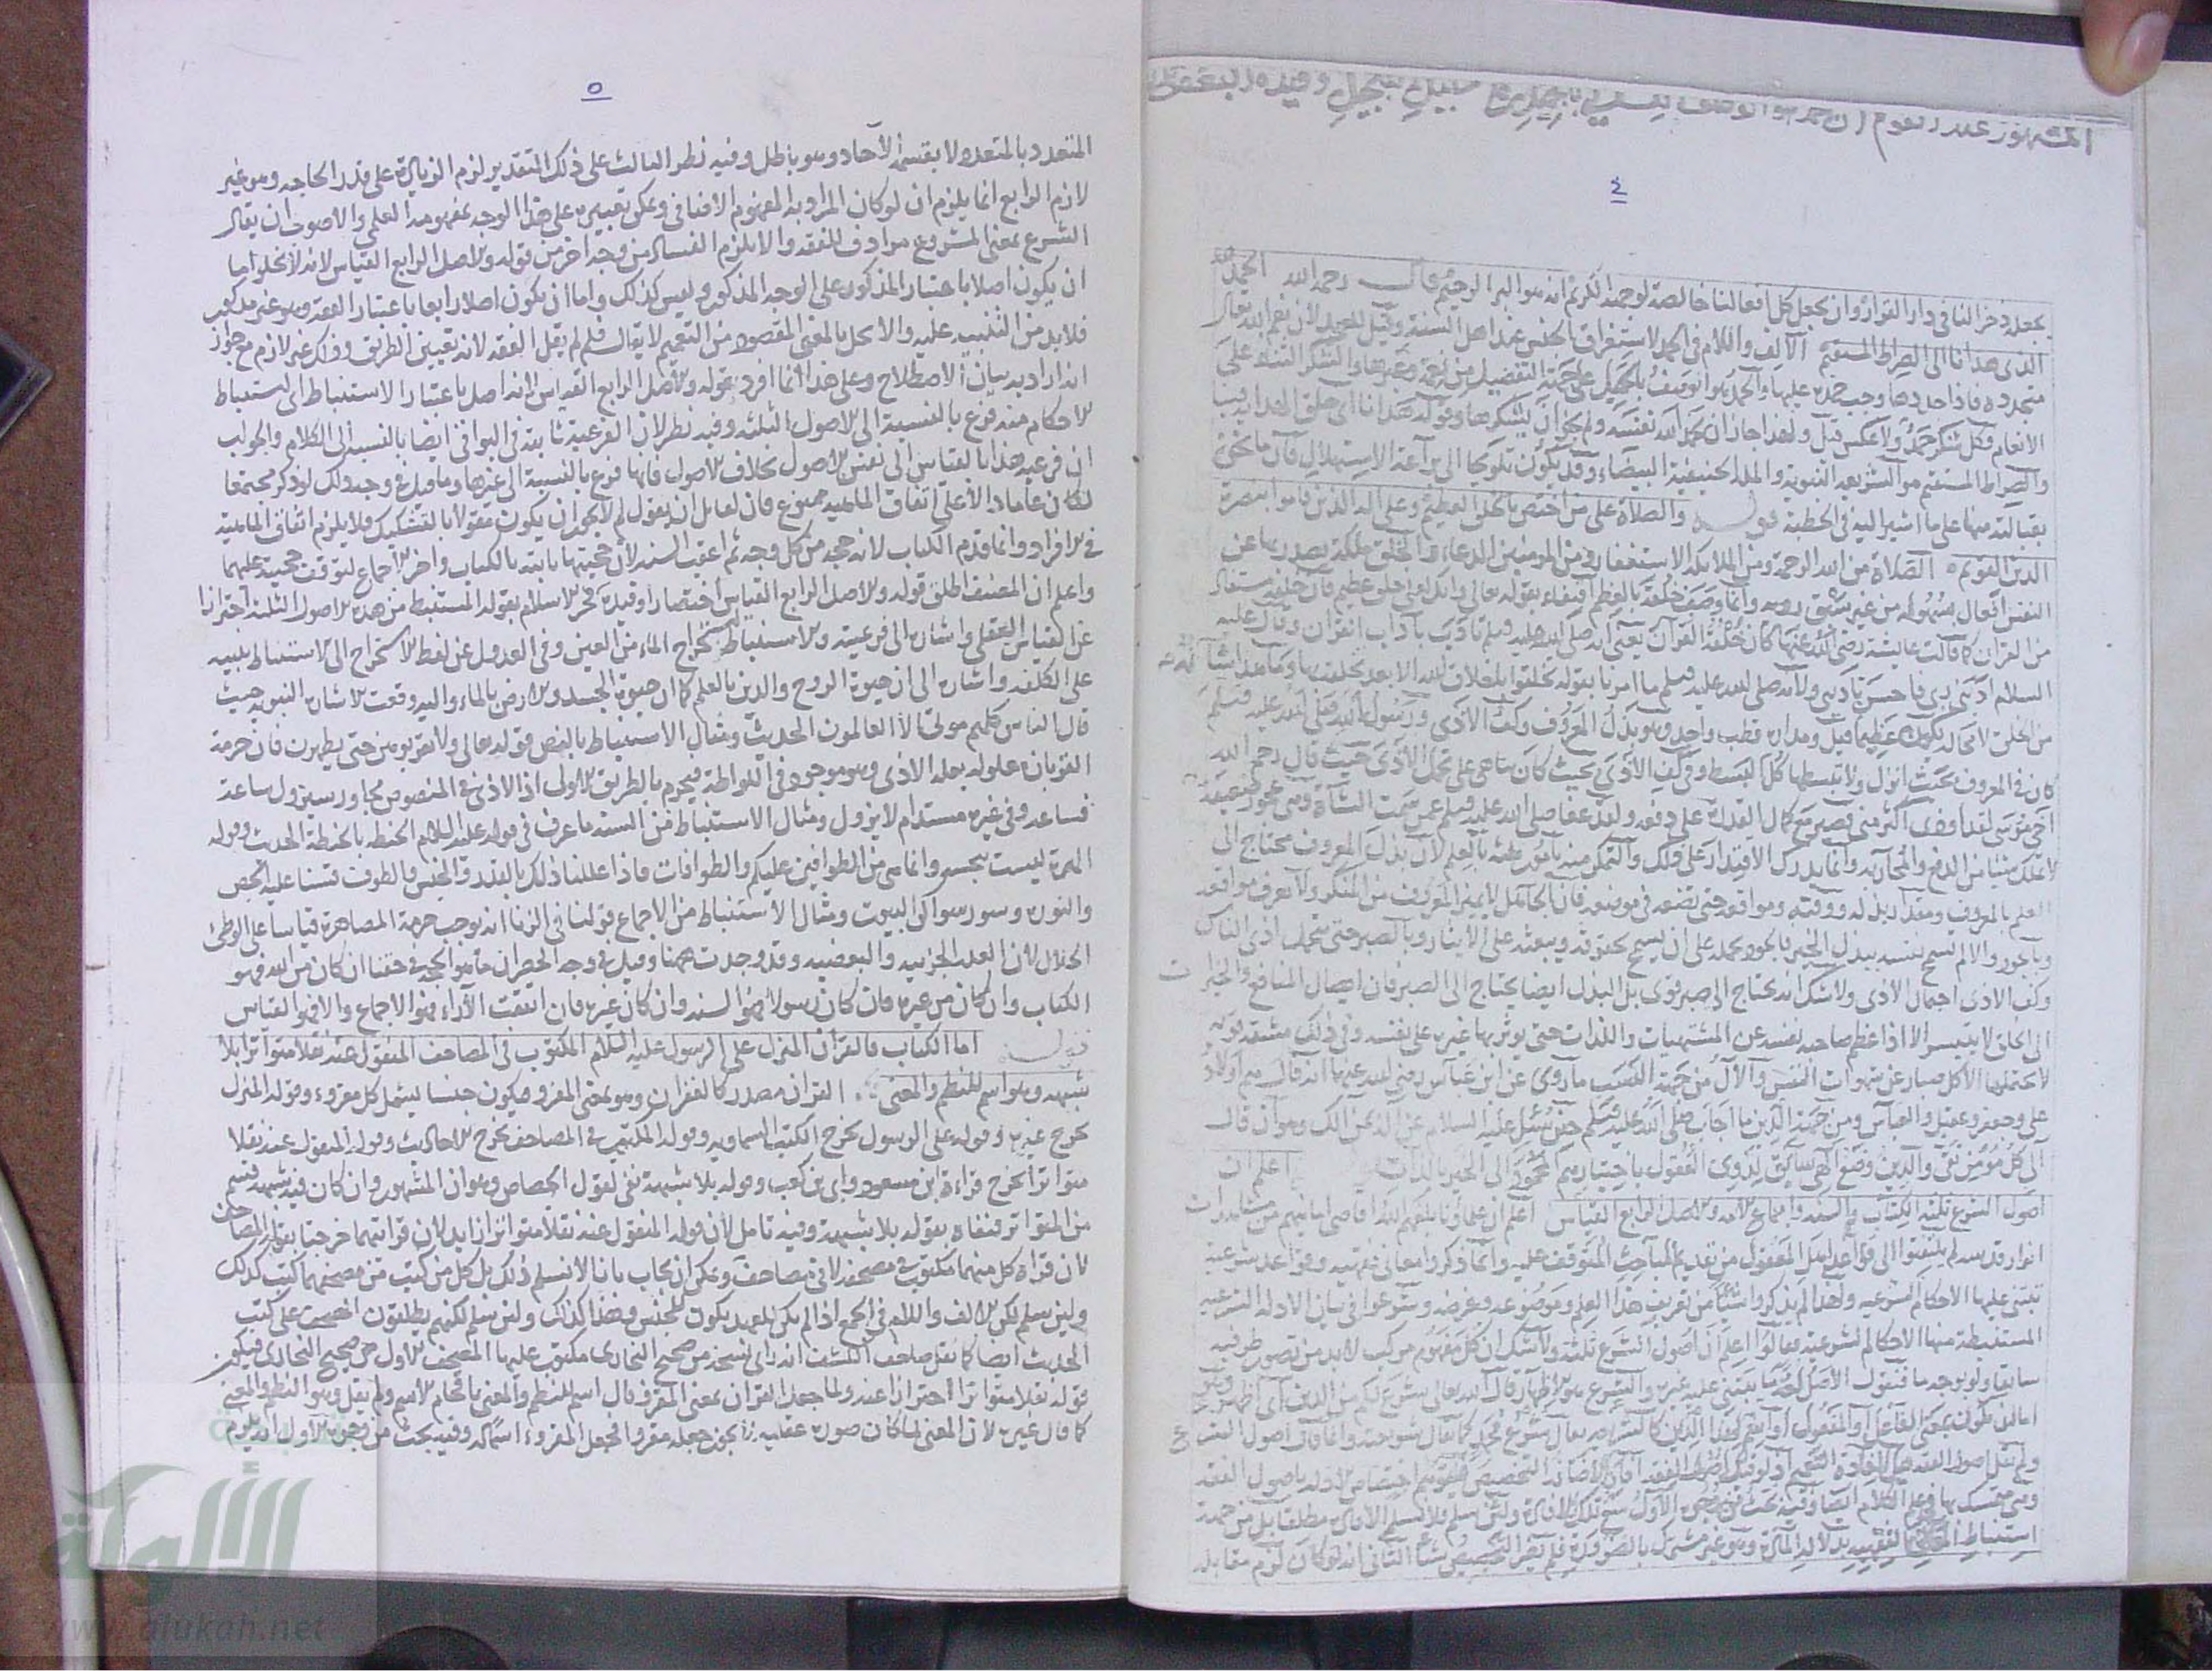 المشهور عند القوم ان الحمد هو الوصف بالجميل
٤
يجعله ذخرا لنا في دار القرار وان يجعل كل افعالنا خالصة لوجهه الكريم انه هو البر الرحيم قال رحمه الله الحمد لله
الذي هدانا الى الصراط المستقيم الالف واللام في الحمد لاستغراق الجنس عند اهل السنة وقيل للعهد لان نعم الله تعالى
متجددة فاذا حمد وجب حمده عليها والحمد هو الوصف بالجميل على جهة التفضيل من نعمة وغيرها والشكر الثناء على
الانعام فكل شكر حمد ولا عكس قيل ولهذا جاز ان يحمد الله نفسه ولم يجز ان يشكرها وقوله هدانا اي خلق الهداية فينا
والصراط المستقيم هو الشريعة النبوية والملة الحنيفية البيضاء وقد يكون تلويحا الى براعة الاستهلال فان ما نحن
بقبالته منها على ما اشير اليه في الخطبة قوله والصلاة على من اختص بالخلق العظيم وعلى اله الذين قاموا بنصرة
الدين القويم الصلاة من الله الرحمة ومن الملائكة الاستغفار ومن المؤمنين الدعاء والخلق ملكة يصدر بها عن
النفس افعال بسهولة من غير سبق روية وانما وصف خلقه بالعظم اقتفاء بقوله تعالى وانك لعلى خلق عظيم فان خلقه مستفاد
من القران كما قالت عايشة رضي الله عنها كان خلقه القرآن يعني انه صلى الله عليه وسلم تأدب بآداب القران وقال عليه
السلام ادبني ربي فاحسن تاديبي ولانه صلى الله عليه وسلم ما امرنا بقوله تخلقوا باخلاق الله الا بعد تخلقه بها وما هذا شانه
من الخلق لا محالة يكون عظيما قيل ومداره قطب واحد وهو بذل المعروف وكف الاذى ورسول الله صلى الله عليه وسلم
كان في المعروف بحيث انزل ولا تبسطها كل البسط وفي كف الاذى بحيث كان على تحمل الاذى حيث قال رحم الله
اخي موسى لقد اوذي اكثر من هذا فصبر مع كمال القدرة على دفعه ولقد عفا صلى الله عليه وسلم عمن سمت الشاة وهي عجوز ضعيفة
لا تملك شيئا من الدفع والمحاربة وانما يدرك الاقتدار على ذلك والتمكن منه بامور ثلثة بالعلم لان بذل المعروف محتاج الى
العلم بالمعروف ومقدار بذله ووقته ومواقعه حتى يضعه في موضعه فان الجاهل لا يميز المعروف من المنكر ولا يعرف مواقعه
وبالجود والا لم تسمح نفسه ببذل الخير بالجود يحمله على ان يسمح بحقوقه ويبعثه على الايثار وبالصبر حتى يتحمل اذى الناس
وكف الاذى احتمال الاذى ولا شك انه يحتاج الى صبر قوي بل البذل ايضا يحتاج الى الصبر فان ايصال المنافع والخير
الى الخلق لا يتيسر الا اذا عظم صاحبه نفسه عن المشتهيات واللذات حتى يوثر بها غيره على نفسه وفي ذلك مشقة قوية
لا يحتملها الا كل صبار عن شهوات النفس والآل من جهة النسب ما روي عن ابن عباس رضي الله عنهما انه قال هم اولاد
علي وجعفر وعقيل والعباس ومن جهة الدين ما اجاب صلى الله عليه وسلم حين سئل عليه السلام عن الآل وهو ان قال
آلي كل مؤمن تقي والدين وضع الهي سائق لذوي العقول باختيارهم المحمود الى الخير بالذات اعلم ان
اصول الشرع ثلثة الكتاب والسنة واجماع الامة والاصل الرابع القياس اعلم ان علماءنا بلغهم الله اقاصي امانيهم من مشاهدات
انوار قدسه لم يلتفتوا الى قواعد اهل المعقول من تقديم المباحث المتوقف عليه وانما ذكروا معاني فقهية وقواعد شرعية
تبتنى عليها الاحكام الشرعية ولهذا لم يذكروا شيئا من تعريف هذا العلم وموضوعه وغرضه وشرعوا في بيان الادلة الشرعية
المستنبطة منها الاحكام الشرعية فقالوا اعلم ان اصول الشرع ثلثة ولا شك ان كل مفهوم مركب لا بد من تصور طرفيه
سابقا ولو بوجه ما فنقول الاصل لغة ما يبتنى عليه غيره والشرع هو الاظهار قال الله تعالى شرع لكم من الدين اي اظهر وهو
اما ان يكون بمعنى الفاعل او المفعول او اسم لهذا الدين كالشريعة يقال شرع محمد كما يقال شريعته وانما قال اصول الشرع
ولم يقل اصول الفقه لافادة التعميم اذ لو قيل اصول الفقه التخصيص فيتوهم اختصاص الادلة باصول الفقه
وهي متمسك بها في علم الكلام ايضا وفيه بحث من وجوه الاول منع تلك الافادة ولئن سلم فلا نسلم الافادة مطلقا بل من جهة
استنباط الفقهية بدلالة المادة وهو غير مشترك بالضرورة فلم يضر التخصيص بشأ الثاني انه لو كان لزم مقابلة
٥
المتعدد بالمتعدد ولا بقسمة الآحاد وهو باطل وفيه نظر الثالث على ذلك التقدير لزم الزيادة على قدر الحاجة وهو غير
لازم الرابع انما يلزم ان لو كان المراد به المفهوم الاضافي ويمكن تعيينه على هذا الوجه بمفهومه العلمي والاصوب ان يقال
الشرع بمعنى المشروع مرادف للفقه والا يلزم الفساد من وجه اخر من قوله والاصل الرابع القياس لانه لا يخلو اما
ان يكون اصلا باعتبار المذكور على الوجه المذكور وليس كذلك واما ان يكون اصلا رابعا باعتبار الفقه وهو غير مذكور
فلا بد من التنبيه عليه والا يخل بالمعنى المقصود من التعميم لا يقال فلم لم يقل الفقه لانه تعيين الطريق وذلك غير لازم مع جواز
انه اراد به بيان الاصطلاح وعلى هذا انما افرد بقوله والاصل الرابع القياس لانه اصل باعتبار الاستنباط اي استنباط
الاحكام منه فرع بالنسبة الى الاصول الثلثة وفيه نظر لان الفرعية ثابتة في البواقي ايضا بالنسبة الى الكلام والجواب
ان فرعية هذا القياس الى نفس الاصول بخلاف الاصول فانها فرع بالنسبة الى غيرها وما قيل في وجه ذلك لو ذكر مجتمعا
لكان عاما دالا على اتفاق الماهية ممنوع فان لقايل ان يقول لم لا يجوز ان يكون مقولا بالتشكيك فلا يلزم اتفاق الماهية
في الافراد وانما قدم الكتاب لانه حجة من كل وجه ثم اعقب السنة لان حجيتها ثابتة بالكتاب واخر الاجماع لتوقف حجيته عليهما
واعلم ان المصنف اطلق قوله والاصل الرابع القياس اختصارا وقيده فخر الاسلام بقوله المستنبط من هذه الاصول الثلثة احترازا
عن القياس العقلي واشارة الى فرعيته والاستنباط استخراج الماء من العين وفي العدول عن لفظ الاستخراج الى الاستنباط تنبيه
على الكلفة واشارة الى ان حيوة الروح والدين بالعلم كما ان حيوة الجسد والارض بالماء واليه وقعت الاشارة النبوية حيث
قال الناس كلهم موتى الا العالمون الحديث ومثال الاستنباط بالنص قوله تعالى ولا تقربوهن حتى يطهرن فان حرمة
القربان معلولة بعلة الاذى وهو موجود في اللواطة فيحرم بالطريق الاولى اذ الاذى في المنصوص مجاور يسير يزول ساعة
فساعة وفي غيره مستدام لا يزول ومثال الاستنباط من السنة ما عرف في قوله عليه السلام الحنطة بالحنطة الحديث وقوله
الهرة ليست بنجسة وانما هي من الطوافين عليكم والطوافات فاذا عللنا ذلك بالقدر والجنس والطوف قسنا عليه الجص
والنورة وسؤر سواكن البيوت ومثال الاستنباط من الاجماع قولنا في الزنا انه يوجب حرمة المصاهرة قياسا على الوطئ
الحلال لان العلة الجزئية والبعضية وقد وجدت ههنا وقيل في وجه الحصر ان ما هو الحجة في حقنا ان كان من الله فهو
الكتاب وان كان من غيره فان كان رسولا فهو السنة وان كان غيره فان اتفقت الآراء فهو الاجماع والا فهو القياس
قوله اما الكتاب فالقرآن المنزل على الرسول عليه السلام المكتوب في المصاحف المنقول عنه نقلا متواترا بلا
شبهة وهو اسم للنظم والمعنى القران مصدر كالغفران وهو بمعنى المقرو فيكون جنسا يشمل كل مقروء وقوله المنزل
يخرج غيره وقوله على الرسول يخرج الكتب السماوية وقوله المكتوب في المصاحف يخرج الاحاديث وقوله المنقول عنه نقلا
متواترا يخرج قراءة ابن مسعود وابي بن كعب وقوله بلا شبهة نفي لقول الجصاص وهو ان المشهور وان كان فيه شبهة قسم
من المتواتر فنفاه بقوله بلا شبهة وفيه تامل لان قوله المنقول عنه نقلا متواترا زايد لان قراتهما خرجتا بقوله في المصاحف
لان قراة كل منهما مكتوبة في مصحفه لا في مصاحف ويمكن ان يجاب بانا لا نسلم ذلك بل كل من كتب من مصحفهما كتب كذلك
ولئن سلم لكن الالف واللام في الجمع اذا لم يكن للعهد يكون للجنس فهذا كذلك ولئن سلم لكنهم يطلقون المصحف على كتب
الحديث ايضا كما نقل صاحب الكشف انه راى نسخة من صحيح البخاري مكتوب عليها المصحف الاول من صحيح البخاري فيكون
قوله نقلا متواترا احترازا عنه ولما جعل القران بمعنى المقرو قال اسم للنظم والمعنى باقحام الاسم ولم يقل وهو النظم والمعنى
كما قال غيره لان المعنى لما كان صورة عقلية لا يجوز جعله مقروا فجعل المقروء اسما له وفيه بحث من وجوه الاول انه يلزم
الألوكة
www.alukah.net